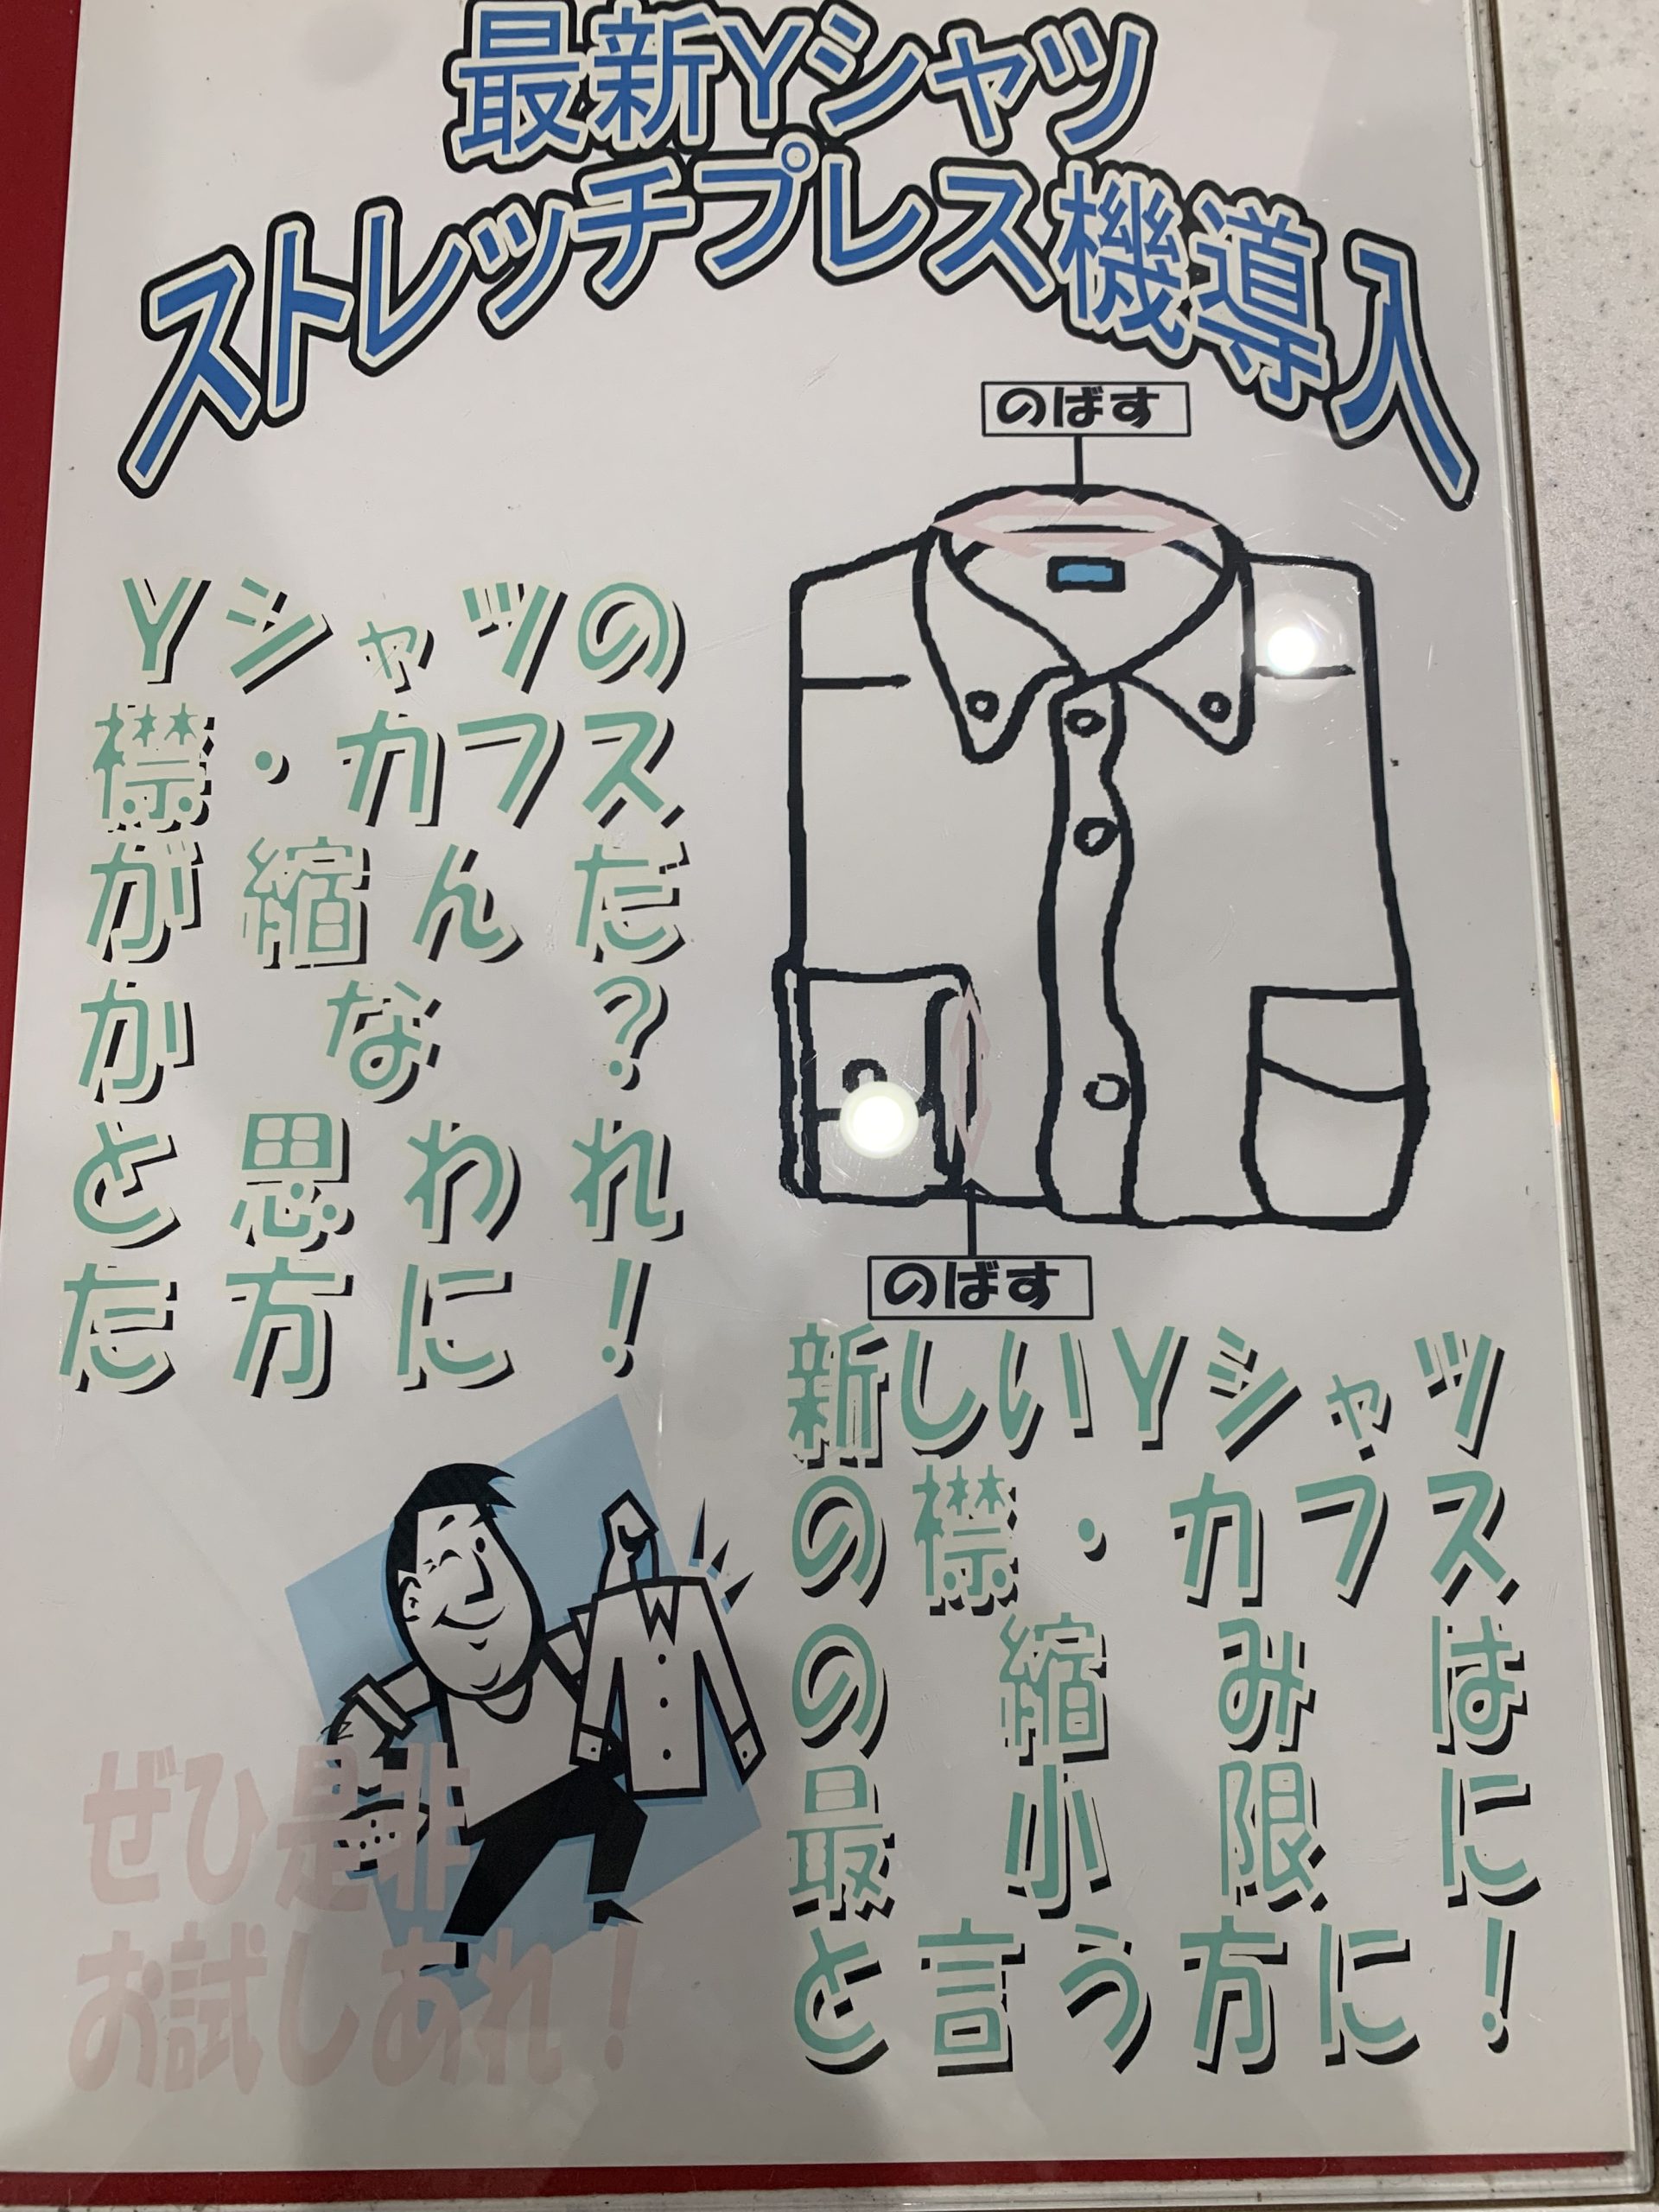 最新Yシャツ
ストレッチプレス機導入
のばす
Yシャツの
襟・カフス
が縮んだ
かな?
と思われ
た方に!
のばす
新しいYシャツ
の襟・カフス
の縮みは
最小限に
と言う方に!
ぜひ是非
お試しあれ!